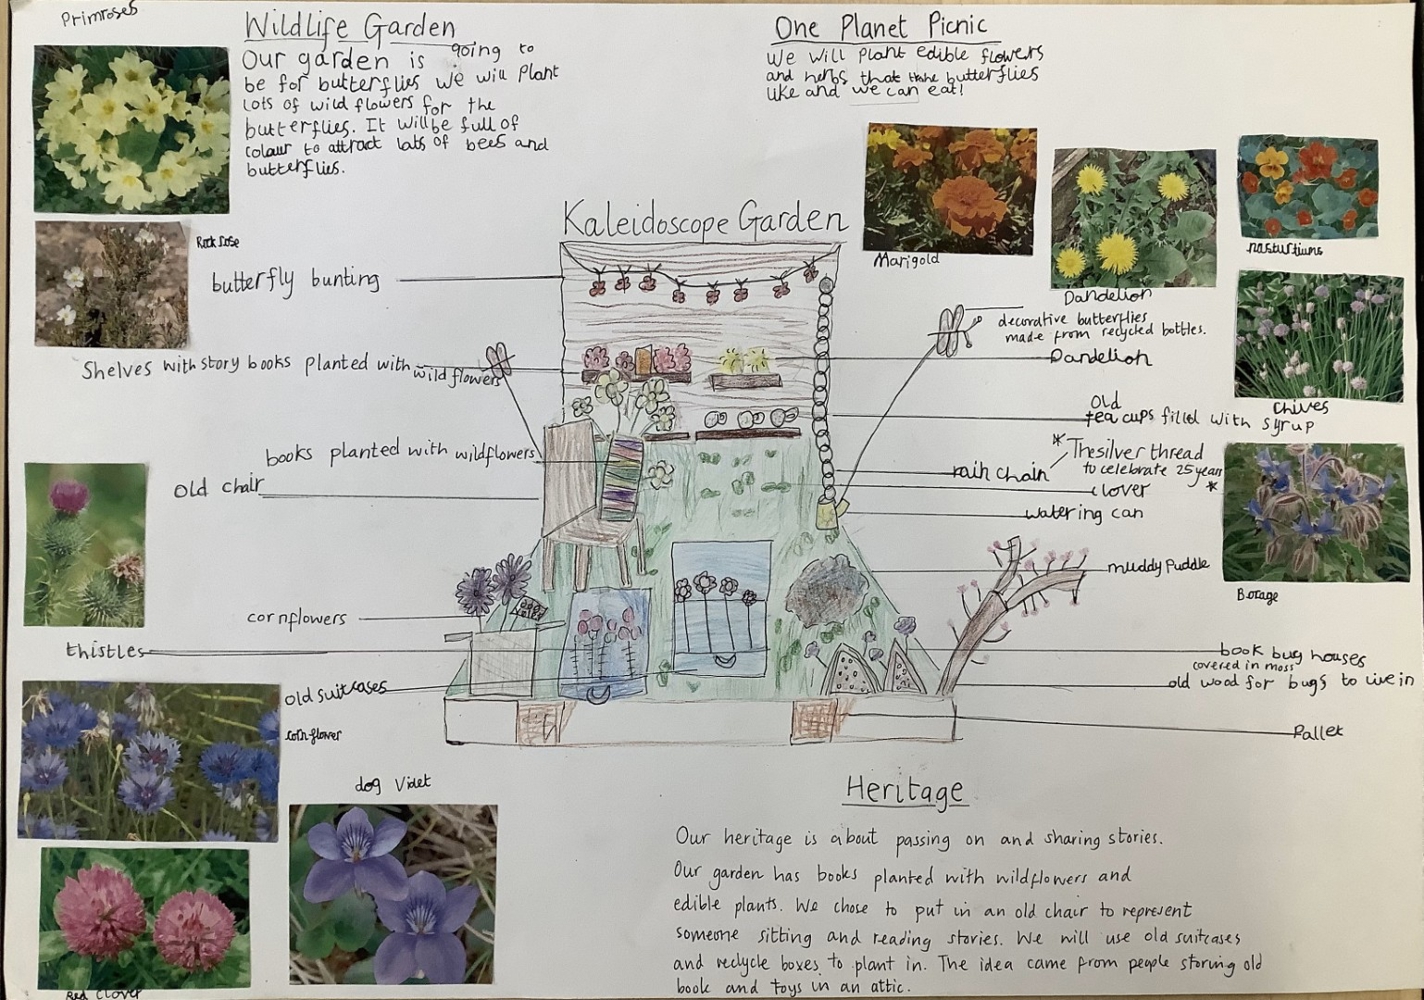 Primroses
Wildlife Garden
Our garden is going to
be for butterflies we will plant
lots of wild flowers for the
butterflies. It will be full of
colour to attract lots of bees and
butterflies.
One Planet Picnic
We will plant edible flowers
and herbs that the butterflies
like and we can eat!
Kaleidoscope Garden
Rock rose
butterfly bunting
Shelves with story books planted with wild flowers
books planted with wildflowers
old chair
cornflowers
thistles
old suitcases
cornflower
dog Violet
Red Clover
Marigold
Dandelion
nasturtiums
decorative butterflies
made from recycled bottles.
Dandelion
Chives
Old
tea cups filled with syrup
* The silver thread
to celebrate 25 years
*
rain chain
clover
watering can
muddy Puddle
Borage
book bug houses
covered in moss
old wood for bugs to live in
Pallet
Heritage
Our heritage is about passing on and sharing stories.
Our garden has books planted with wildflowers and
edible plants. We chose to put in an old chair to represent
someone sitting and reading stories. We will use old suitcases
and recycle boxes to plant in. The idea came from people storing old
book and toys in an attic.